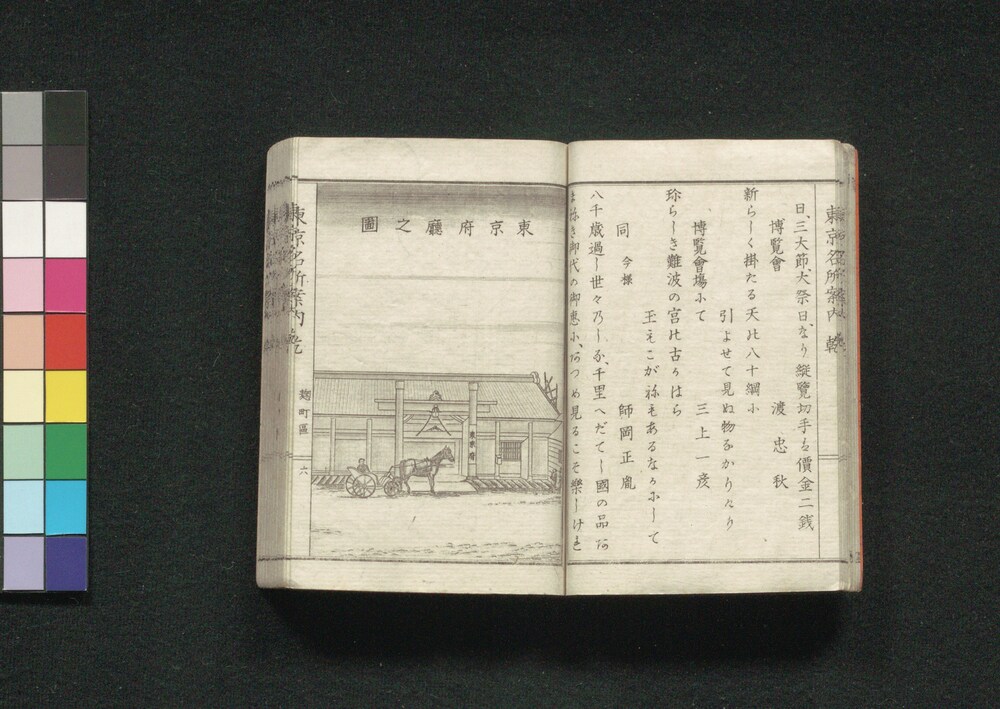 東京名所案内 乾
日、三大節、大祭日、なり縦覧切手は價金二銭
博覧會 渡忠秋
新らしく掛たる天の八十綱に
引よせて見ぬ物なかりけり
博覧會場にて 三上一彦
珍らしき難波の宮の古かはら
玉もこがねもあるなかにして
同 今様 師岡正胤
八千歳過し世々乃しな、千里へだてし國の品
御代の御恵に、あつめ見るこそ樂しけれ
東京府廳之圖
東京府
東京名所案内 乾
麹町區 六